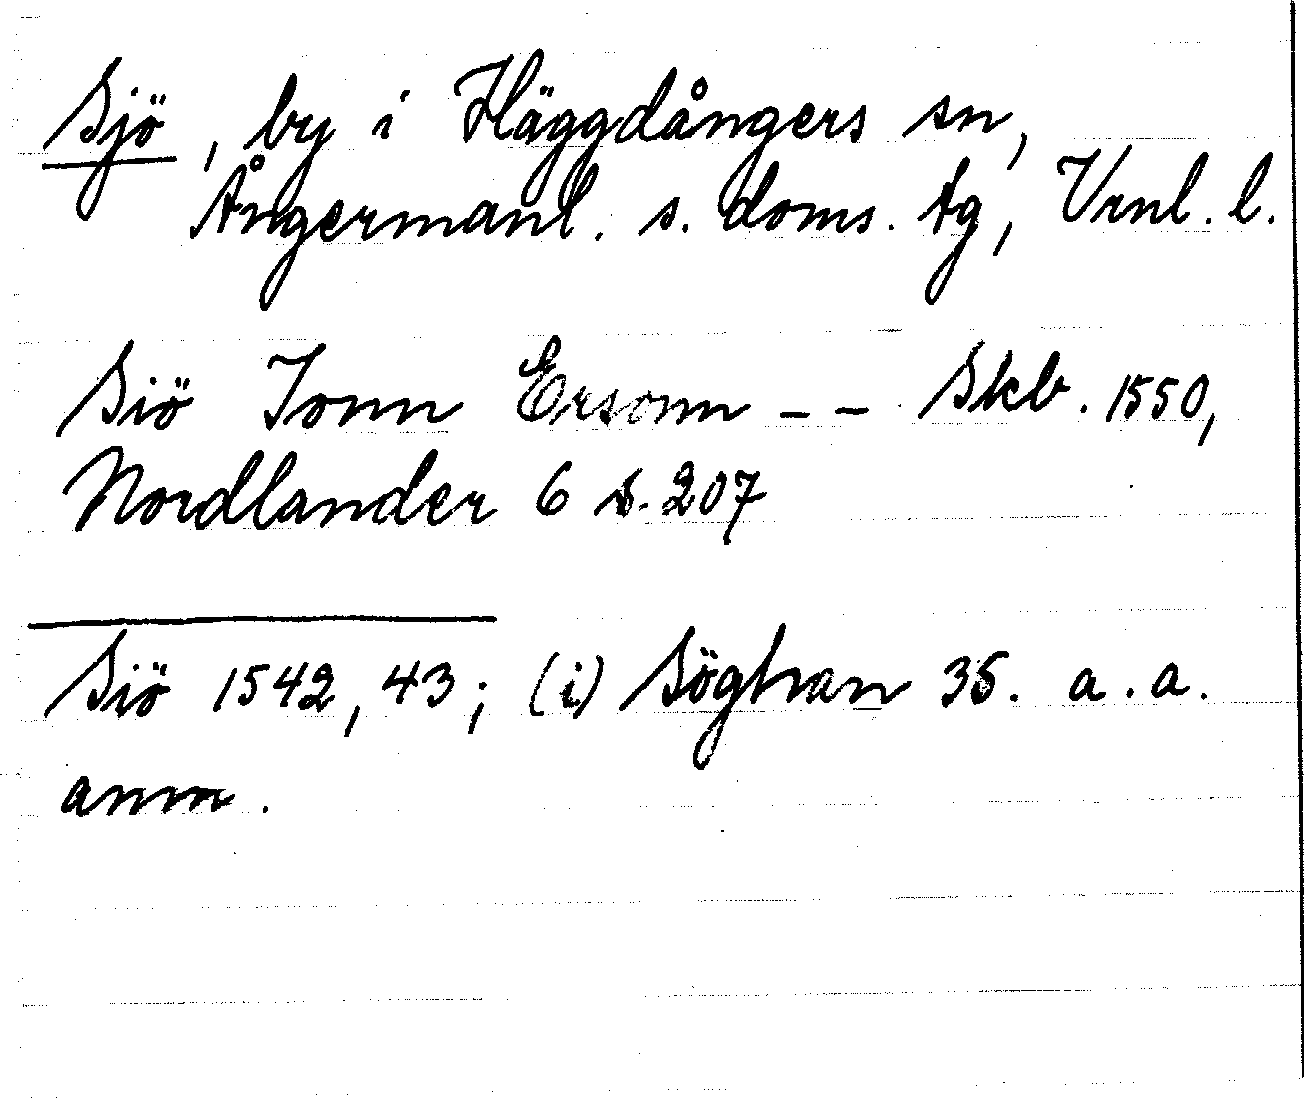 Sjö, by i Häggdångers sn,
Ångermanl. s. doms. tg, Vrnl. l.
Siö Jonn Ersonn – – Skb. 1550,
Nordlander 6 s. 207
Siö 1542, 43; (i) Söghran 35. a.a.
anm.